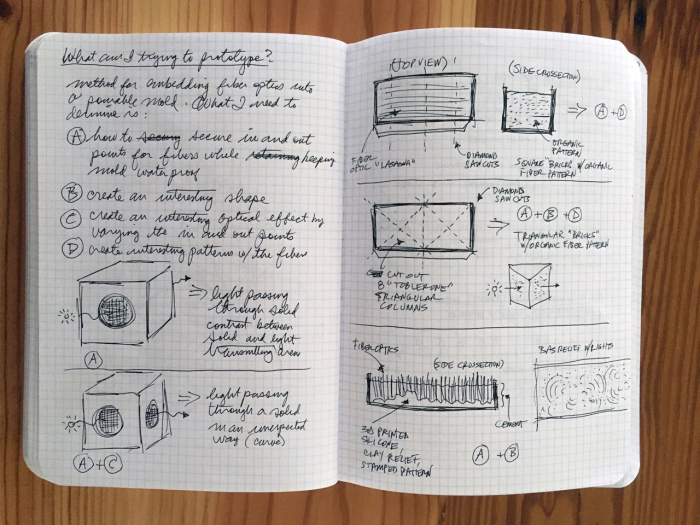 What am I trying to prototype?
method for embedding fiber optics into
a pourable mold. What I need to
determine is:
(A) how to securing secure in and out
points for fibers while retaining keeping
mold waterproof
(B) create an interesting shape
(C) create an interesting optical effect by
varying the in and out points
(D) create interesting patterns w/ the fiber
light passing
through solid
contrast between
solid and light
transmitting area
(A)
light passing
through a solid
in an unexpected
way (curve)
(A) + (C)
(TOP VIEW)
(SIDE CROSSECTION)
(A) + (D)
FIBER
OPTIC "LASAGNA"
DIAMOND
SAW CUTS
ORGANIC
PATTERN
SQUARE "BRICK" W/ORGANIC
FIBER PATTERN
DIAMOND
SAW CUTS
(A) + (B) + (D)
TRIANGULAR "BRICKS"
W/ORGANIC FIBER PATTERN
CUT OUT
8 "TOBLERONE"
TRIANGULAR
COLUMNS
FIBER OPTICS
(SIDE CROSSECTION)
BAS RELIEF W/LIGHTS
CEMENT
3D PRINTED
SILICONE,
CLAY RELIEF,
STAMPED PATTERN
(A) + (B)